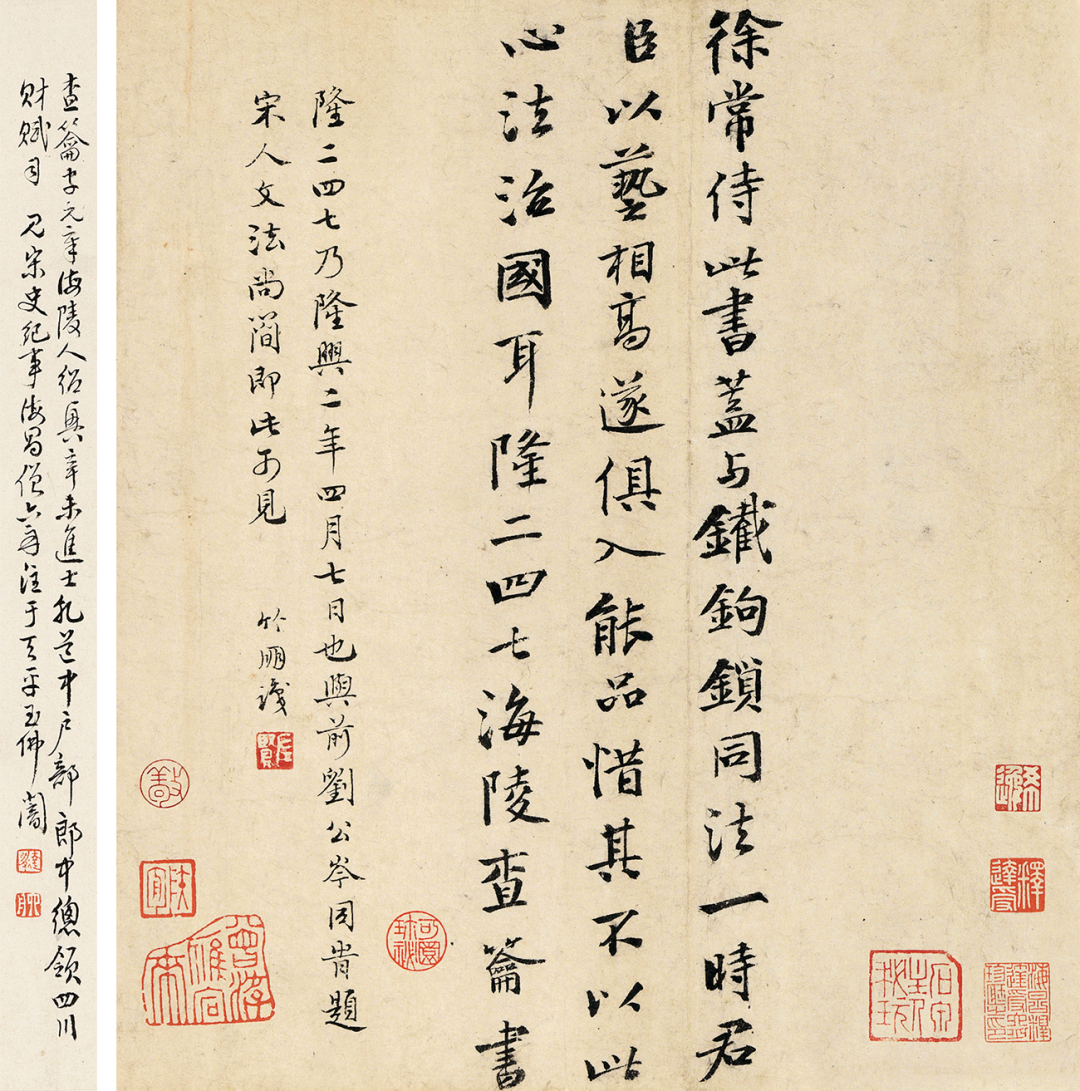 徐常侍此書蓋与鐵鉤鎖同法一時君
臣以藝相高遂俱入能品惜其不以此
心法治國耳隆二四七海陵查籥書
隆二四七乃隆興二年四月七日也與前劉公岑同背題
宋人文法尚簡即此可見
竹朋識
查籥字元章海陵人紹興辛未進士乾道中戶部郎中總領四川
財賦司見宋史紀事海昌僧六舟注于天平玉佛閣